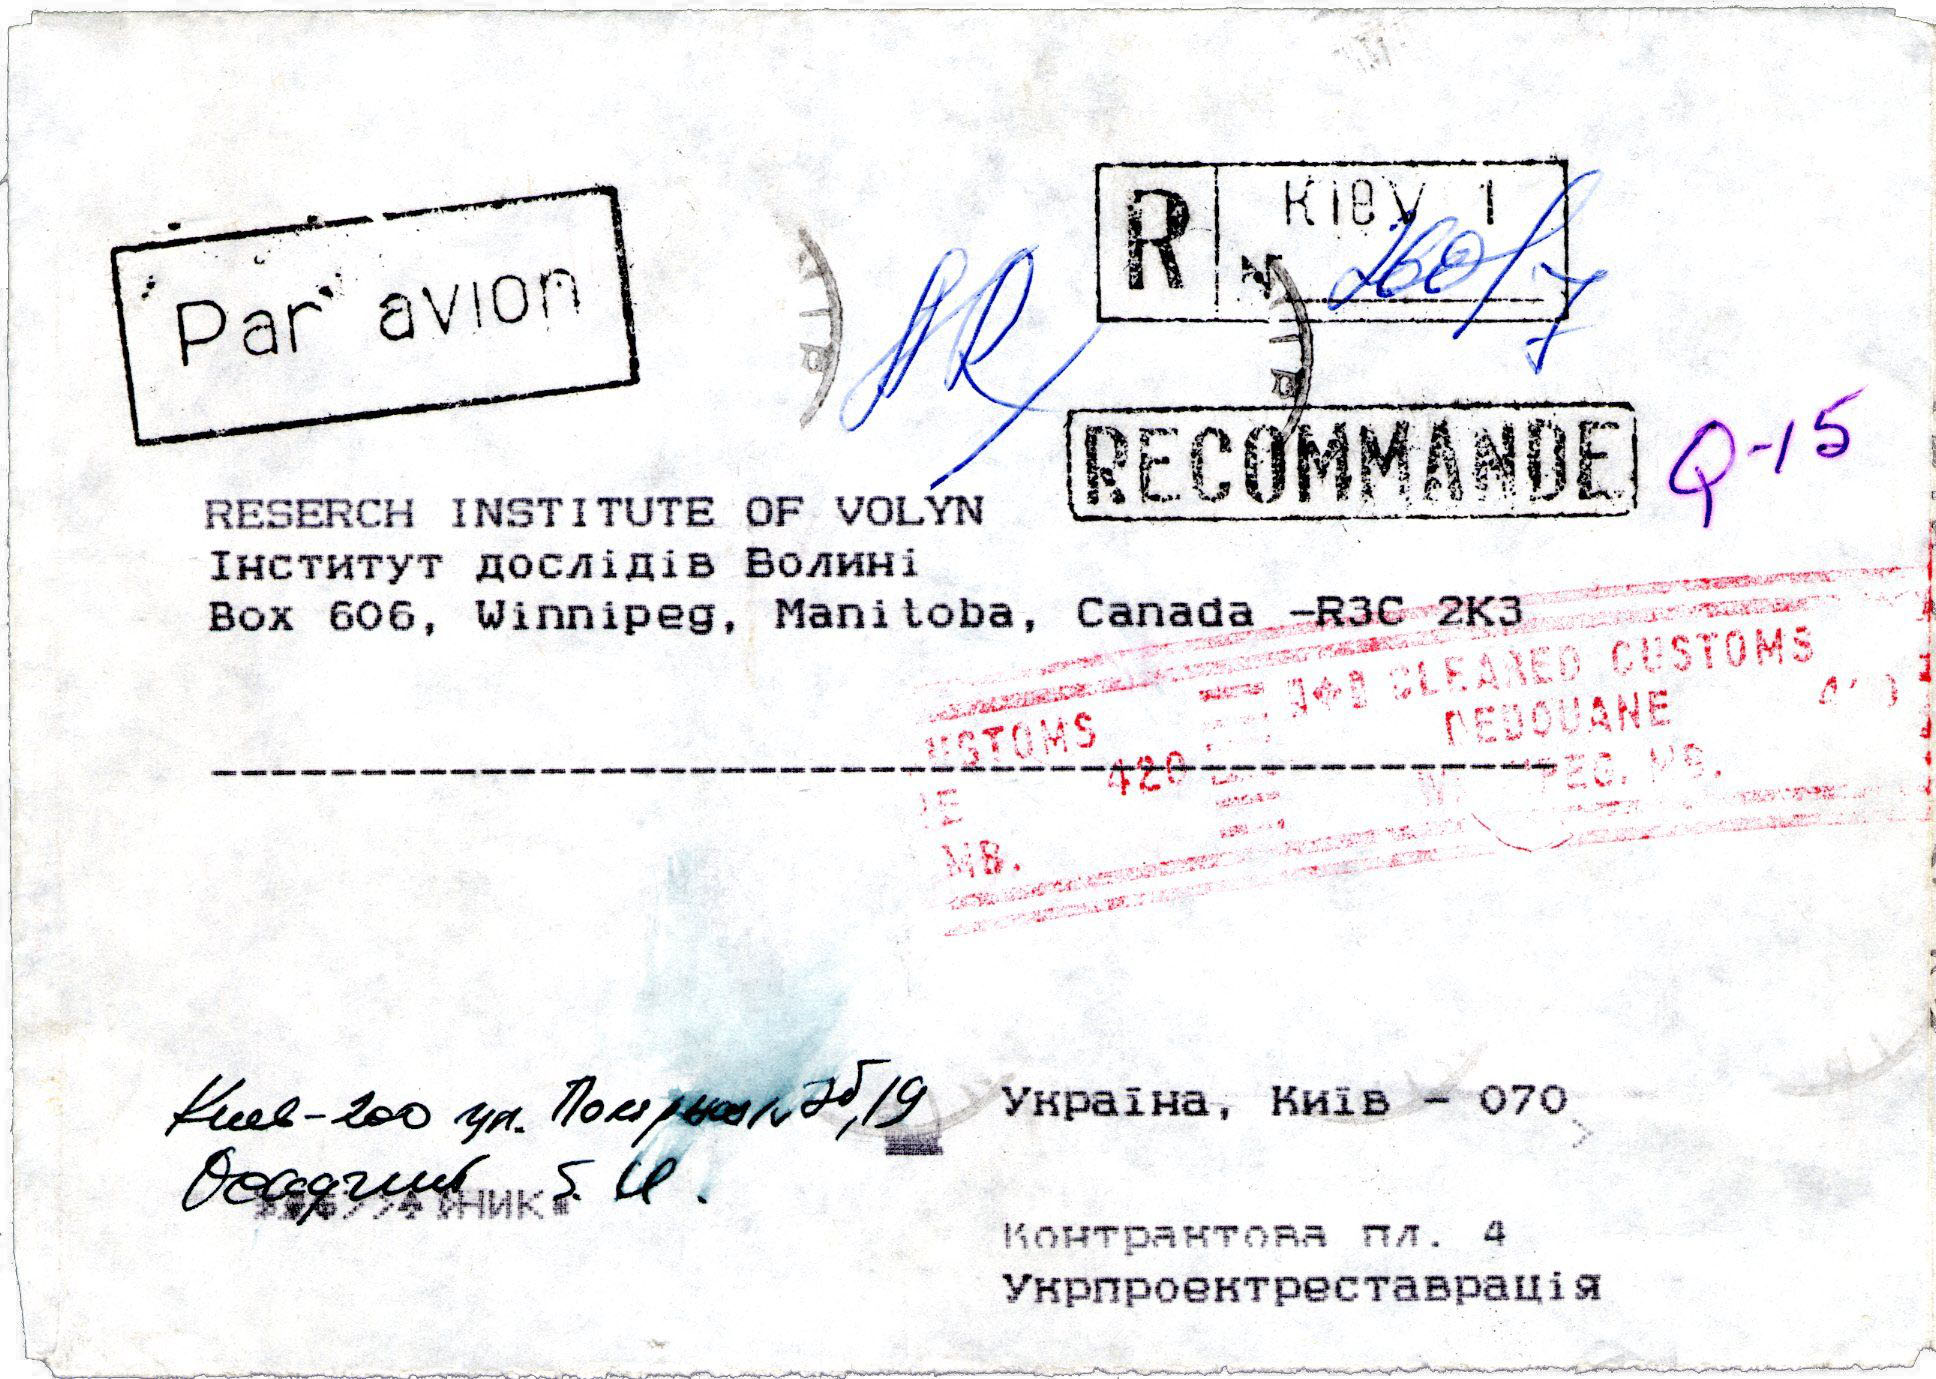 Par avion
R Kiev 1
N 260/7
AR
RECOMMANDE
Q-15
RESERCH INSTITUTE OF VOLYN
Інститут дослідів Волині
Box 606, Winnipeg, Manitoba, Canada -R3C 2K3
CLEARED CUSTOMS
DEDOUANE
USTOMS
420
MB.
Киев-200 ул. 7б, 19
Осадчий Б. И.
Україна, Київ - 070
Контрактова пл. 4
Укрпроектреставрація